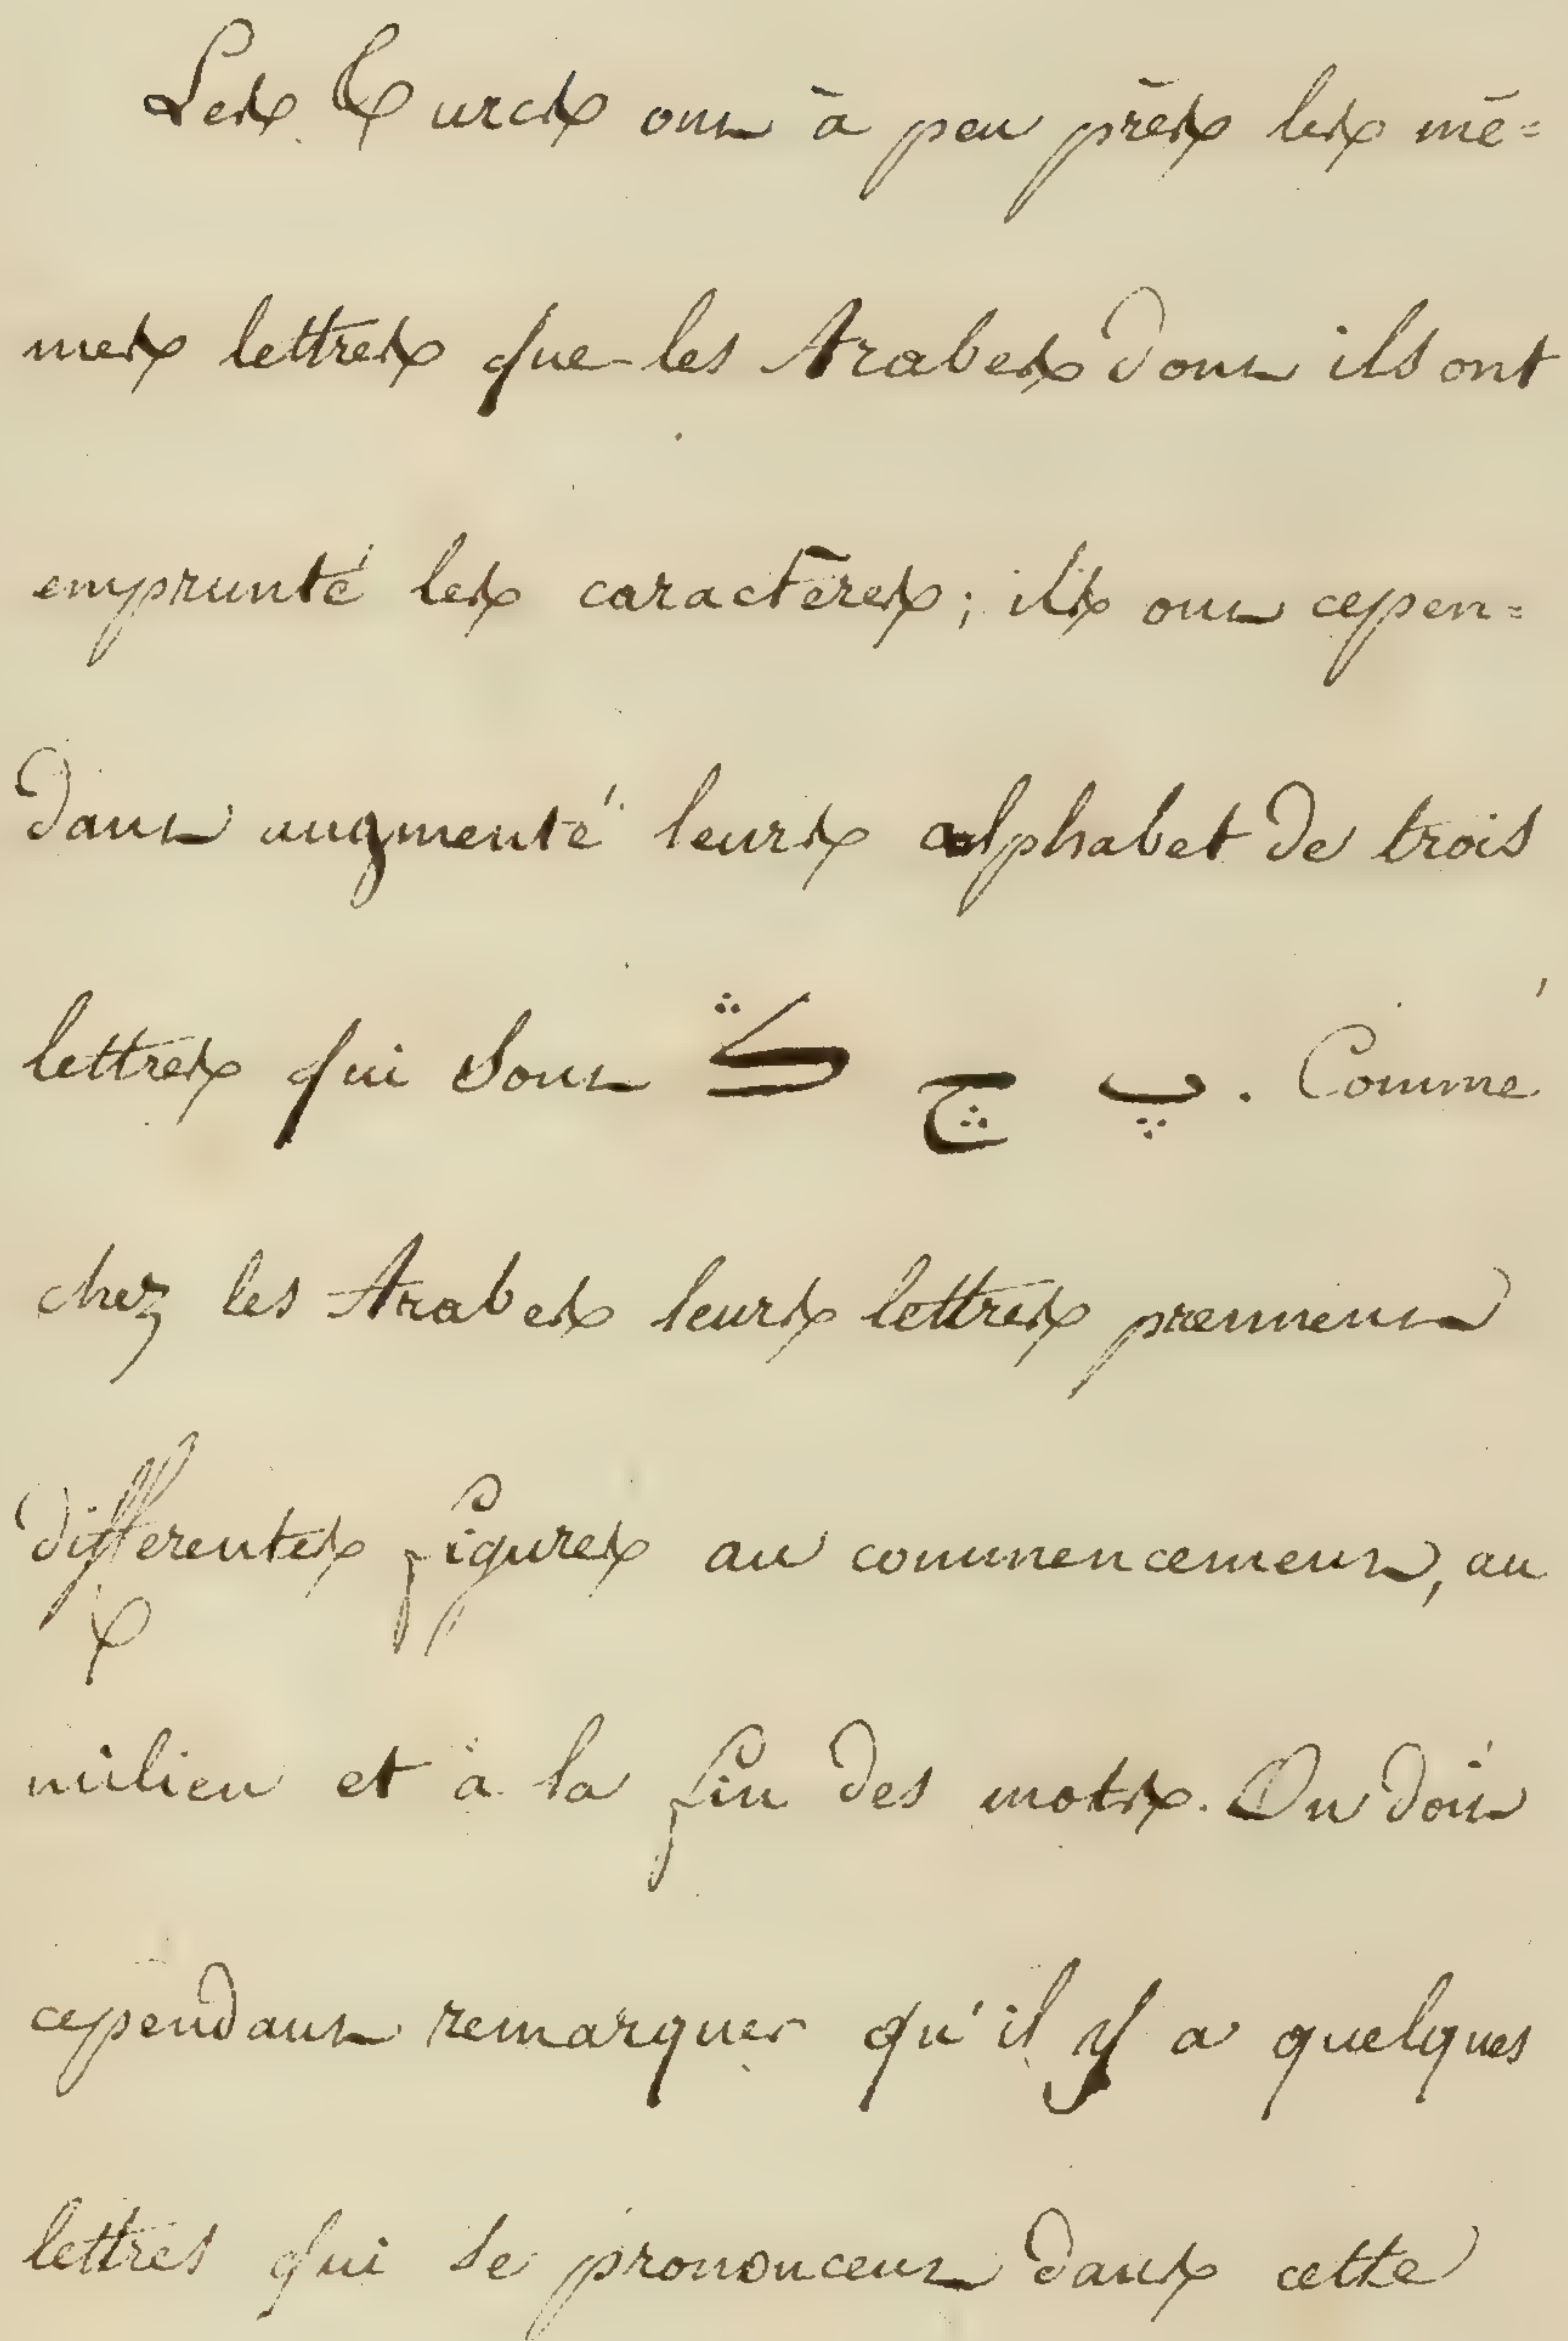 Les Turcs ont à peu près les mê=
mes lettres que les Arabes dont ils ont
emprunté les caractères; ils ont cepen=
dant augmenté leurs alphabet de trois
lettres qui sont ڭ چ پ. Comme
chez les Arabes leurs lettres prennent
differentes figures au commencement, au
milieu et à la fin des mots. On doit
cependant remarquer qu'il y a quelques
lettres qui se prononcent dans cette